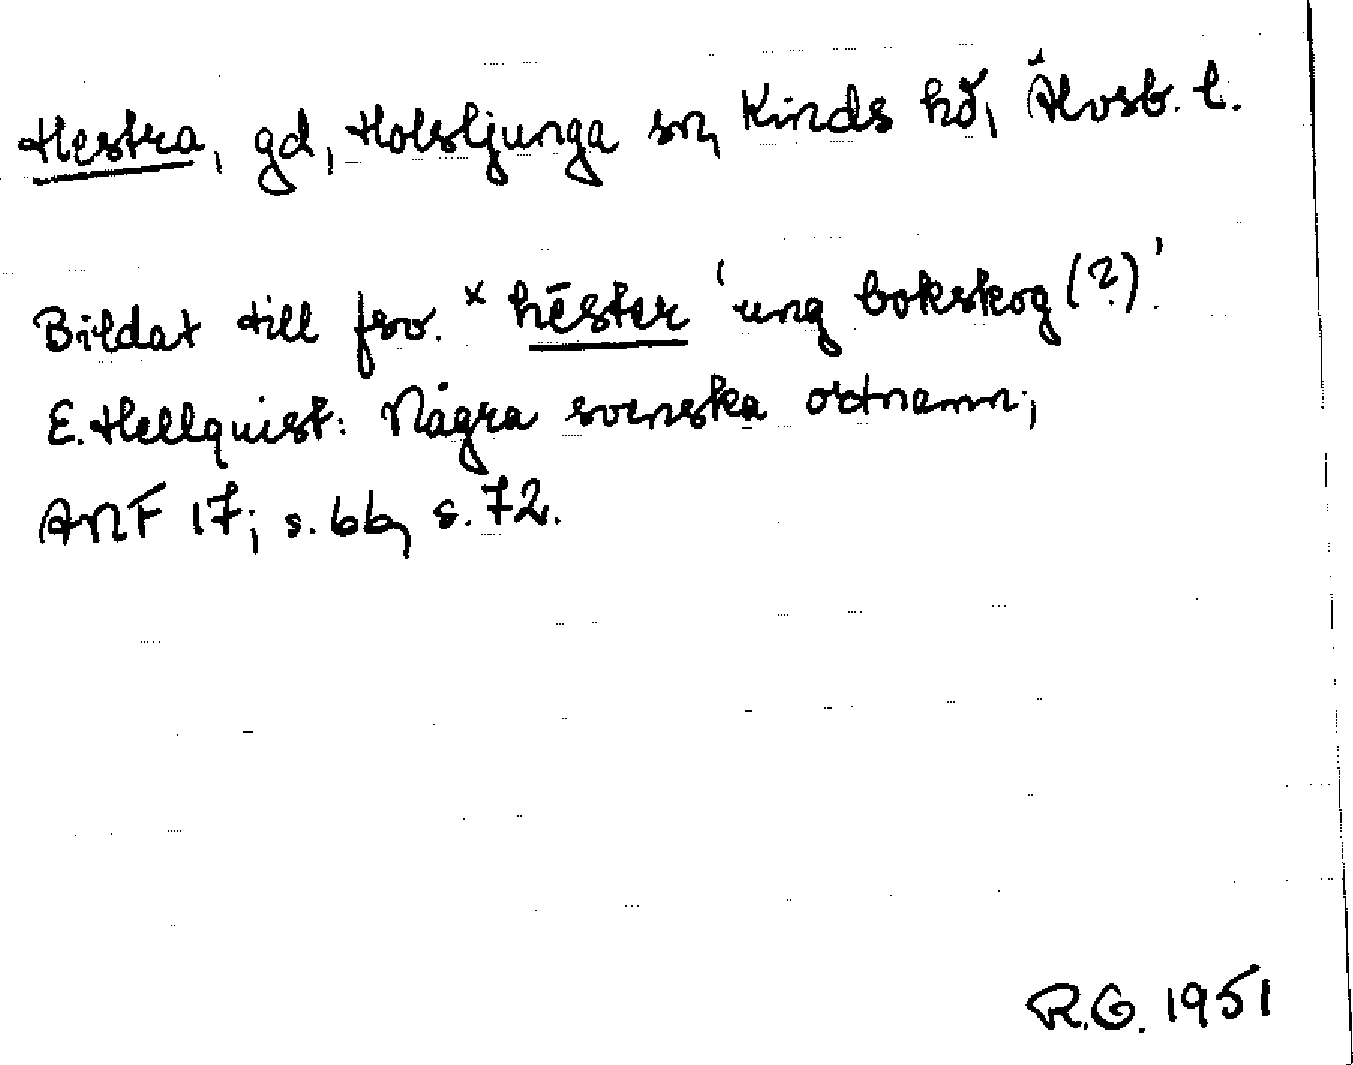 Hestra, gd, Holsljunga sn, Kinds hd, Älvsb. l.
Bildat till fsv. * hēster 'ung bokskog (?)'.
E. Hellquist: Några svenska ortnamn;
ANF 17; s. 66, s. 72.
R.G. 1951